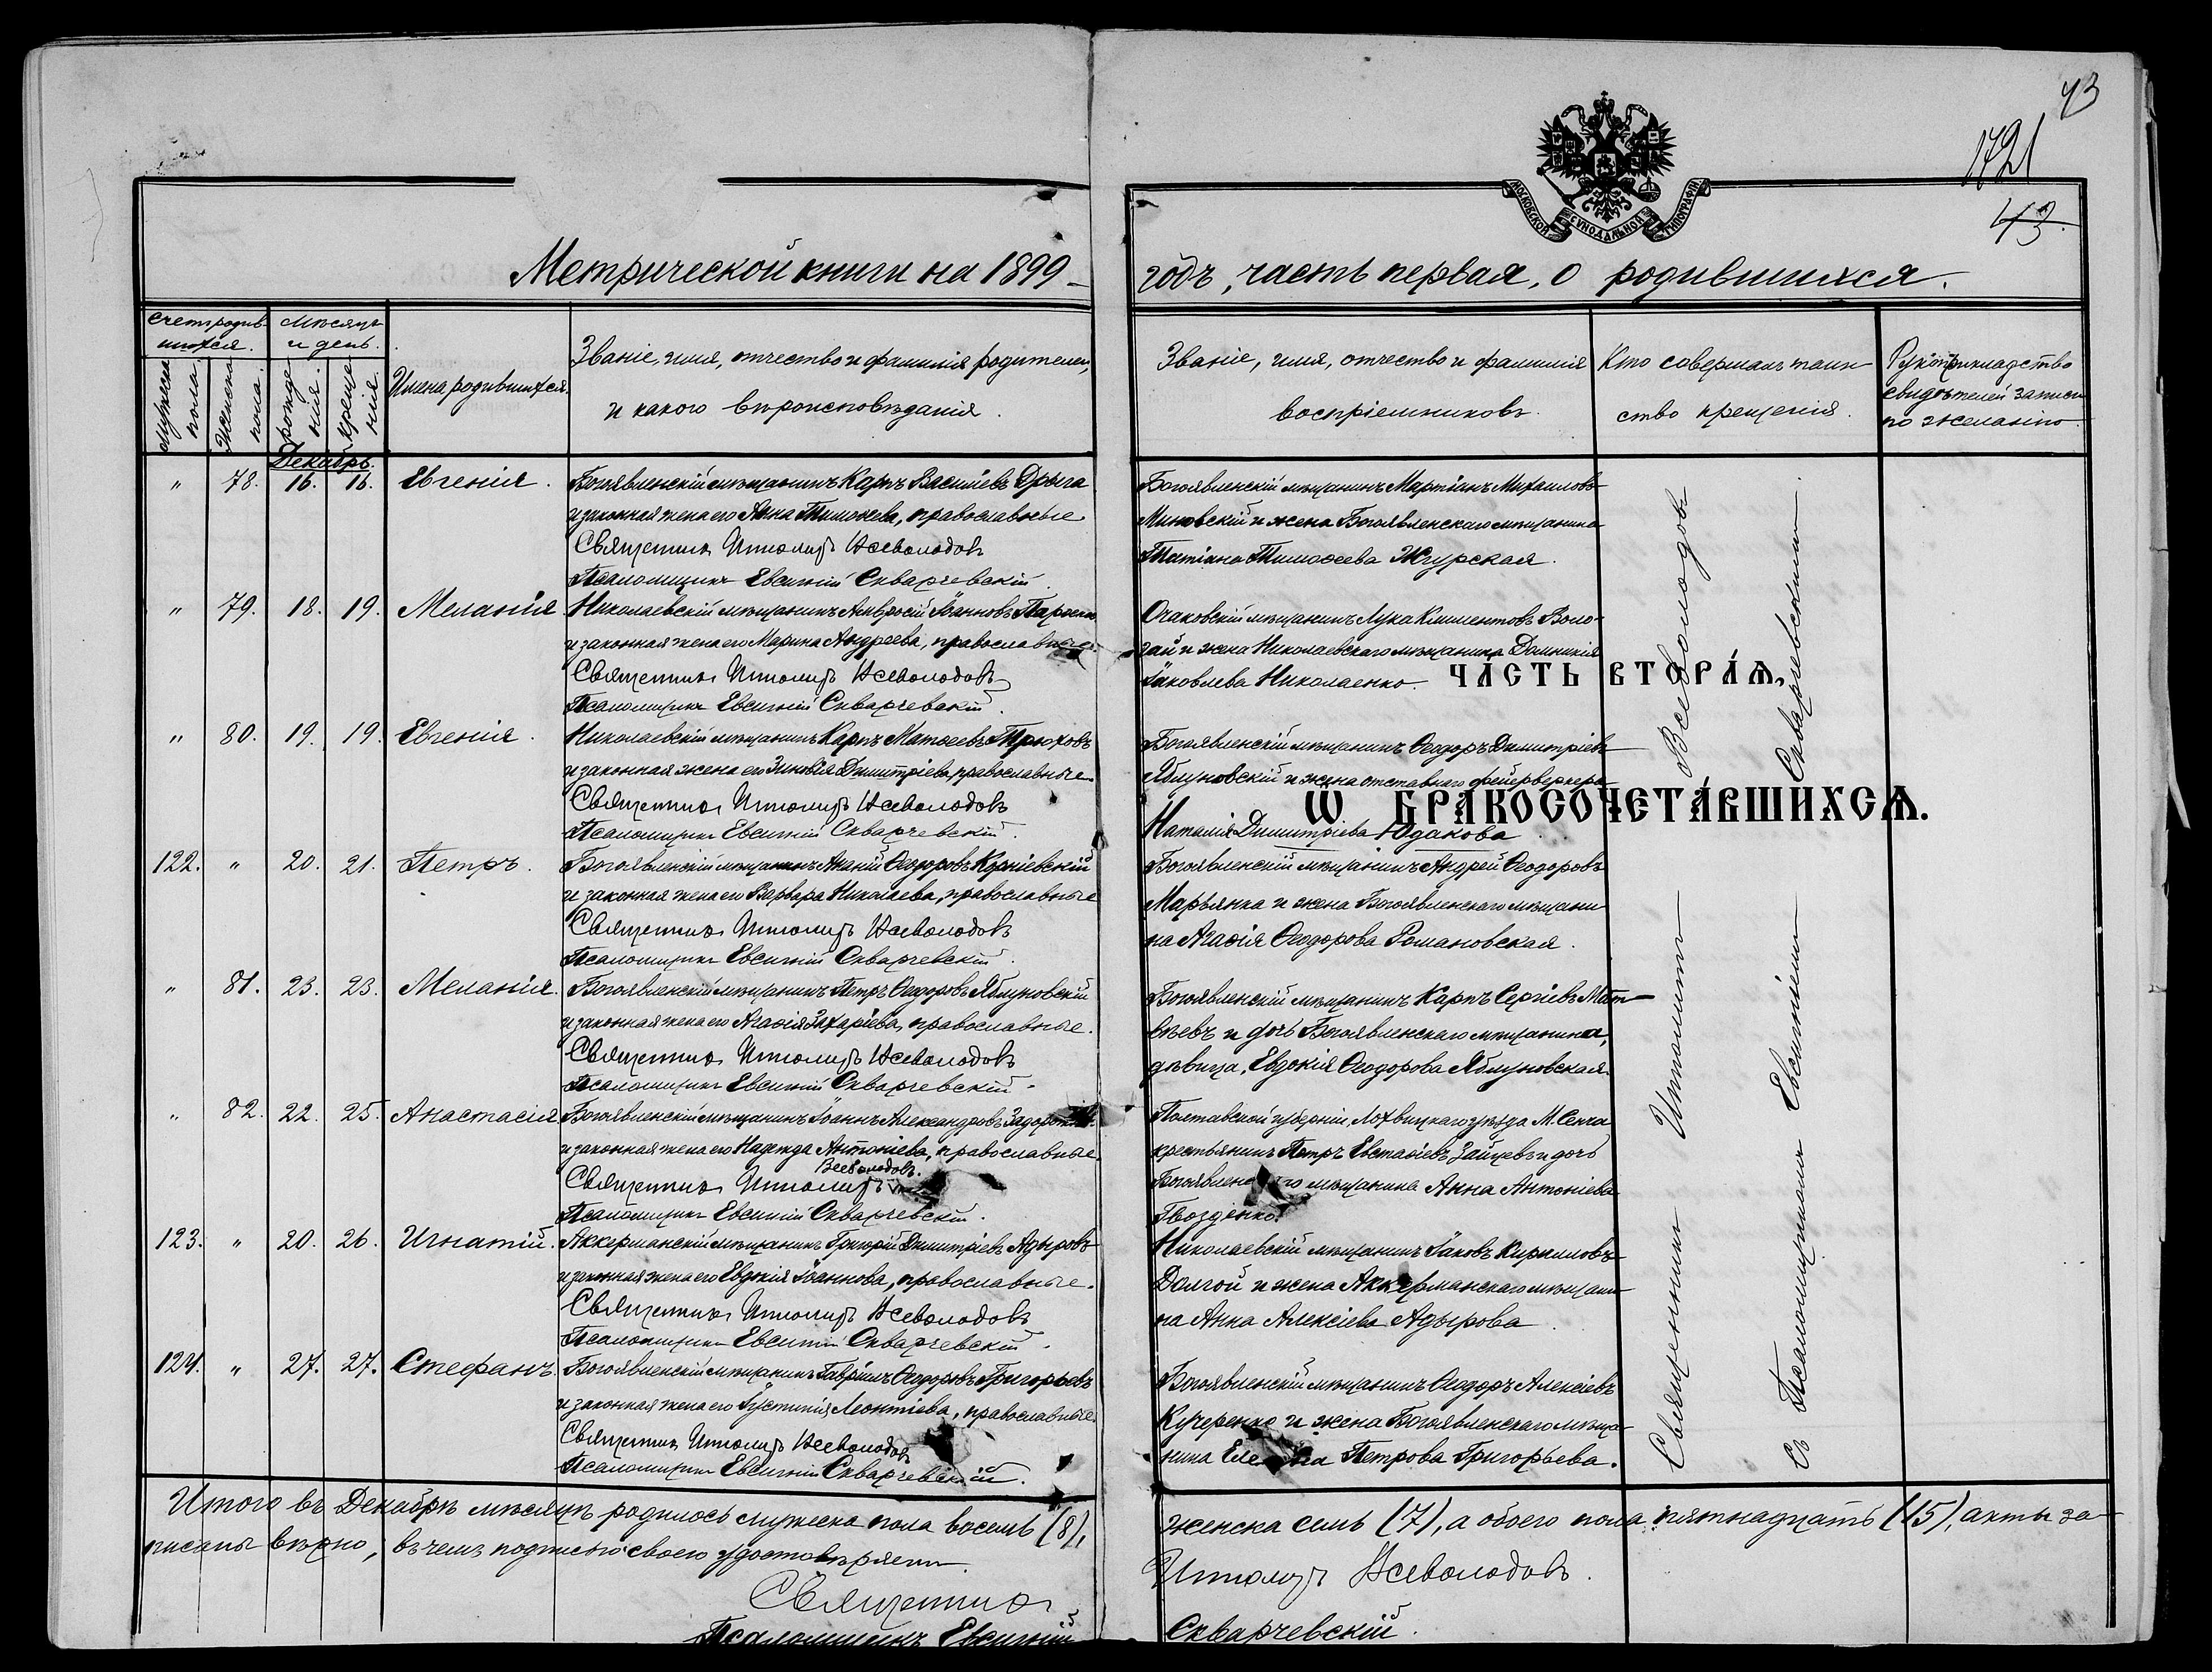 43
1721
43.
МОСКОВСКОЙ СѴНОДАЛЬНОЙ ТИПОГРАФІИ
Метрической книги на 1899
годъ, часть первая, о родившихся.
Счетъ родившихся.
Мѣсяцъ и день.
мужеска пола.
женска пола.
рожденія.
крещенія.
Имена родившихся.
Званіе, имя, отчество и фамилія родителей,
и какого вѣроисповѣданія.
Званіе, имя, отчество и фамилія
воспріемниковъ.
Кто совершалъ таин
ство крещенія.
Рукоприкладство
свидѣтелей записи
по желанію.
Декабрь.
" 78. 16. 16. Евгенія.
Богоявленскій мѣщанинъ Карпъ Василіевъ Дрыга
и законная жена его Анна Тимоѳеева, православные
Священникъ Ипполитъ Всеволодовъ
Псаломщикъ Евсигній Скварчевскій
Богоявленскій мѣщанинъ Мартіанъ Михаиловъ
Миковскій и жена Богоявленскаго мѣщанина
Татіана Тимоѳеева Жгурская.
" 79. 18. 19. Меланія
Николаевскій мѣщанинъ Амвросій Іоанновъ
и законная жена его Марина Андреева, православные.
Священникъ Ипполитъ Всеволодовъ
Псаломщикъ Евсигній Скварчевскій.
Очаковскій мѣщанинъ Лука Климентовъ Воло-
гай и жена Николаевскаго мѣщанина Домникія
Іаковлева Николаенко.
ЧА́СТЬ ВТОРА́Ѧ,
" 80. 19. 19. Евгенія.
Николаевскій мѣщанинъ Карпъ Матѳеевъ Трюховъ
и законная жена его Зиновія Димитріева, православные
Священникъ Ипполитъ Всеволодовъ
Псаломщикъ Евсигній Скварчевскій.
Богоявленскій мѣщанинъ Ѳеодоръ Димитріевъ
Яблуновскій и жена отставнаго фейерверкера
Наталія Димитріева Юдакова
Ѡ БРАКОСОЧЕТА́ВШИХСѦ.
122. " 20. 21. Петръ.
Богоявленскій мѣщанинъ Ананій Ѳеодоровъ Корніевскій
и законная жена его Варвара Николаева, православные
Священникъ Ипполитъ Всеволодовъ
Псаломщикъ Евсигній Скварчевскій.
Богоявленскій мѣщанинъ Андрей Ѳеодоровъ
Марьянка и жена Богоявленскаго мѣщани
на Агаѳія Ѳеодорова Романовская.
" 81. 23. 23. Меланія.
Богоявленскій мѣщанинъ Петръ Ѳеодоровъ Яблуновскій
и законная жена его Агаѳія Захаріева, православные.
Священникъ Ипполитъ Всеволодовъ
Псаломщикъ Евсигній Скварчевскій.
Богоявленскій мѣщанинъ Карпъ Сергіевъ Мат-
вѣевъ и дочь Богоявленскаго мѣщанина,
дѣвица, Евдокія Ѳеодорова Яблуновская.
" 82. 22. 25. Анастасія
Богоявленскій мѣщанинъ Іоаннъ Александровъ
и законная жена его Надежда Антоніева, православные.
Всеволодовъ.
Священникъ Ипполитъ
Псаломщикъ Евсигній Скварчевскій.
Полтавской губерніи, Лохвицкаго уѣзда М. Сенча
крестьянинъ Петръ Евстаѳіевъ Зайцевъ и дочь
мѣщанина Анна Антоніева
Гвозденко.
123. " 20. 26. Игнатій.
Аккерманскій мѣщанинъ Григорій Димитріевъ Адыровъ
и законная жена его Евдокія Іоаннова, православные.
Священникъ Ипполитъ Всеволодовъ
Псаломщикъ Евсигній Скварчевскій.
Николаевскій мѣщанинъ Іаковъ Кирилловъ
Долгой и жена Аккерманскаго мѣщани
на Анна Алексіева Адырова.
124. " 27. 27. Стефанъ.
Богоявленскій мѣщанинъ Гавріилъ Ѳеодоровъ Григорьевъ
и законная жена его Іустинія Леонтіева, православные.
Священникъ Ипполитъ Всеволодовъ
Псаломщикъ Евсигній Скварчевскій.
Богоявленскій мѣщанинъ Ѳеодоръ Алексіевъ
Кучеренко и жена Богоявленскаго мѣща-
нина Петрова Григорьева.
Священникъ Ипполитъ Всеволодовъ
съ Псаломщикомъ Евсигніемъ Скварчевскимъ.
Итого въ Декабрѣ мѣсяцѣ родилось мужеска пола восемь (8),
женска семь (7), а обоего пола пятнадцать (15), акты за-
писаны вѣрно, въ чемъ подписью своею удостовѣряемъ.
Священникъ Ипполитъ Всеволодовъ.
Псаломщикъ Евсигній Скварчевскій.